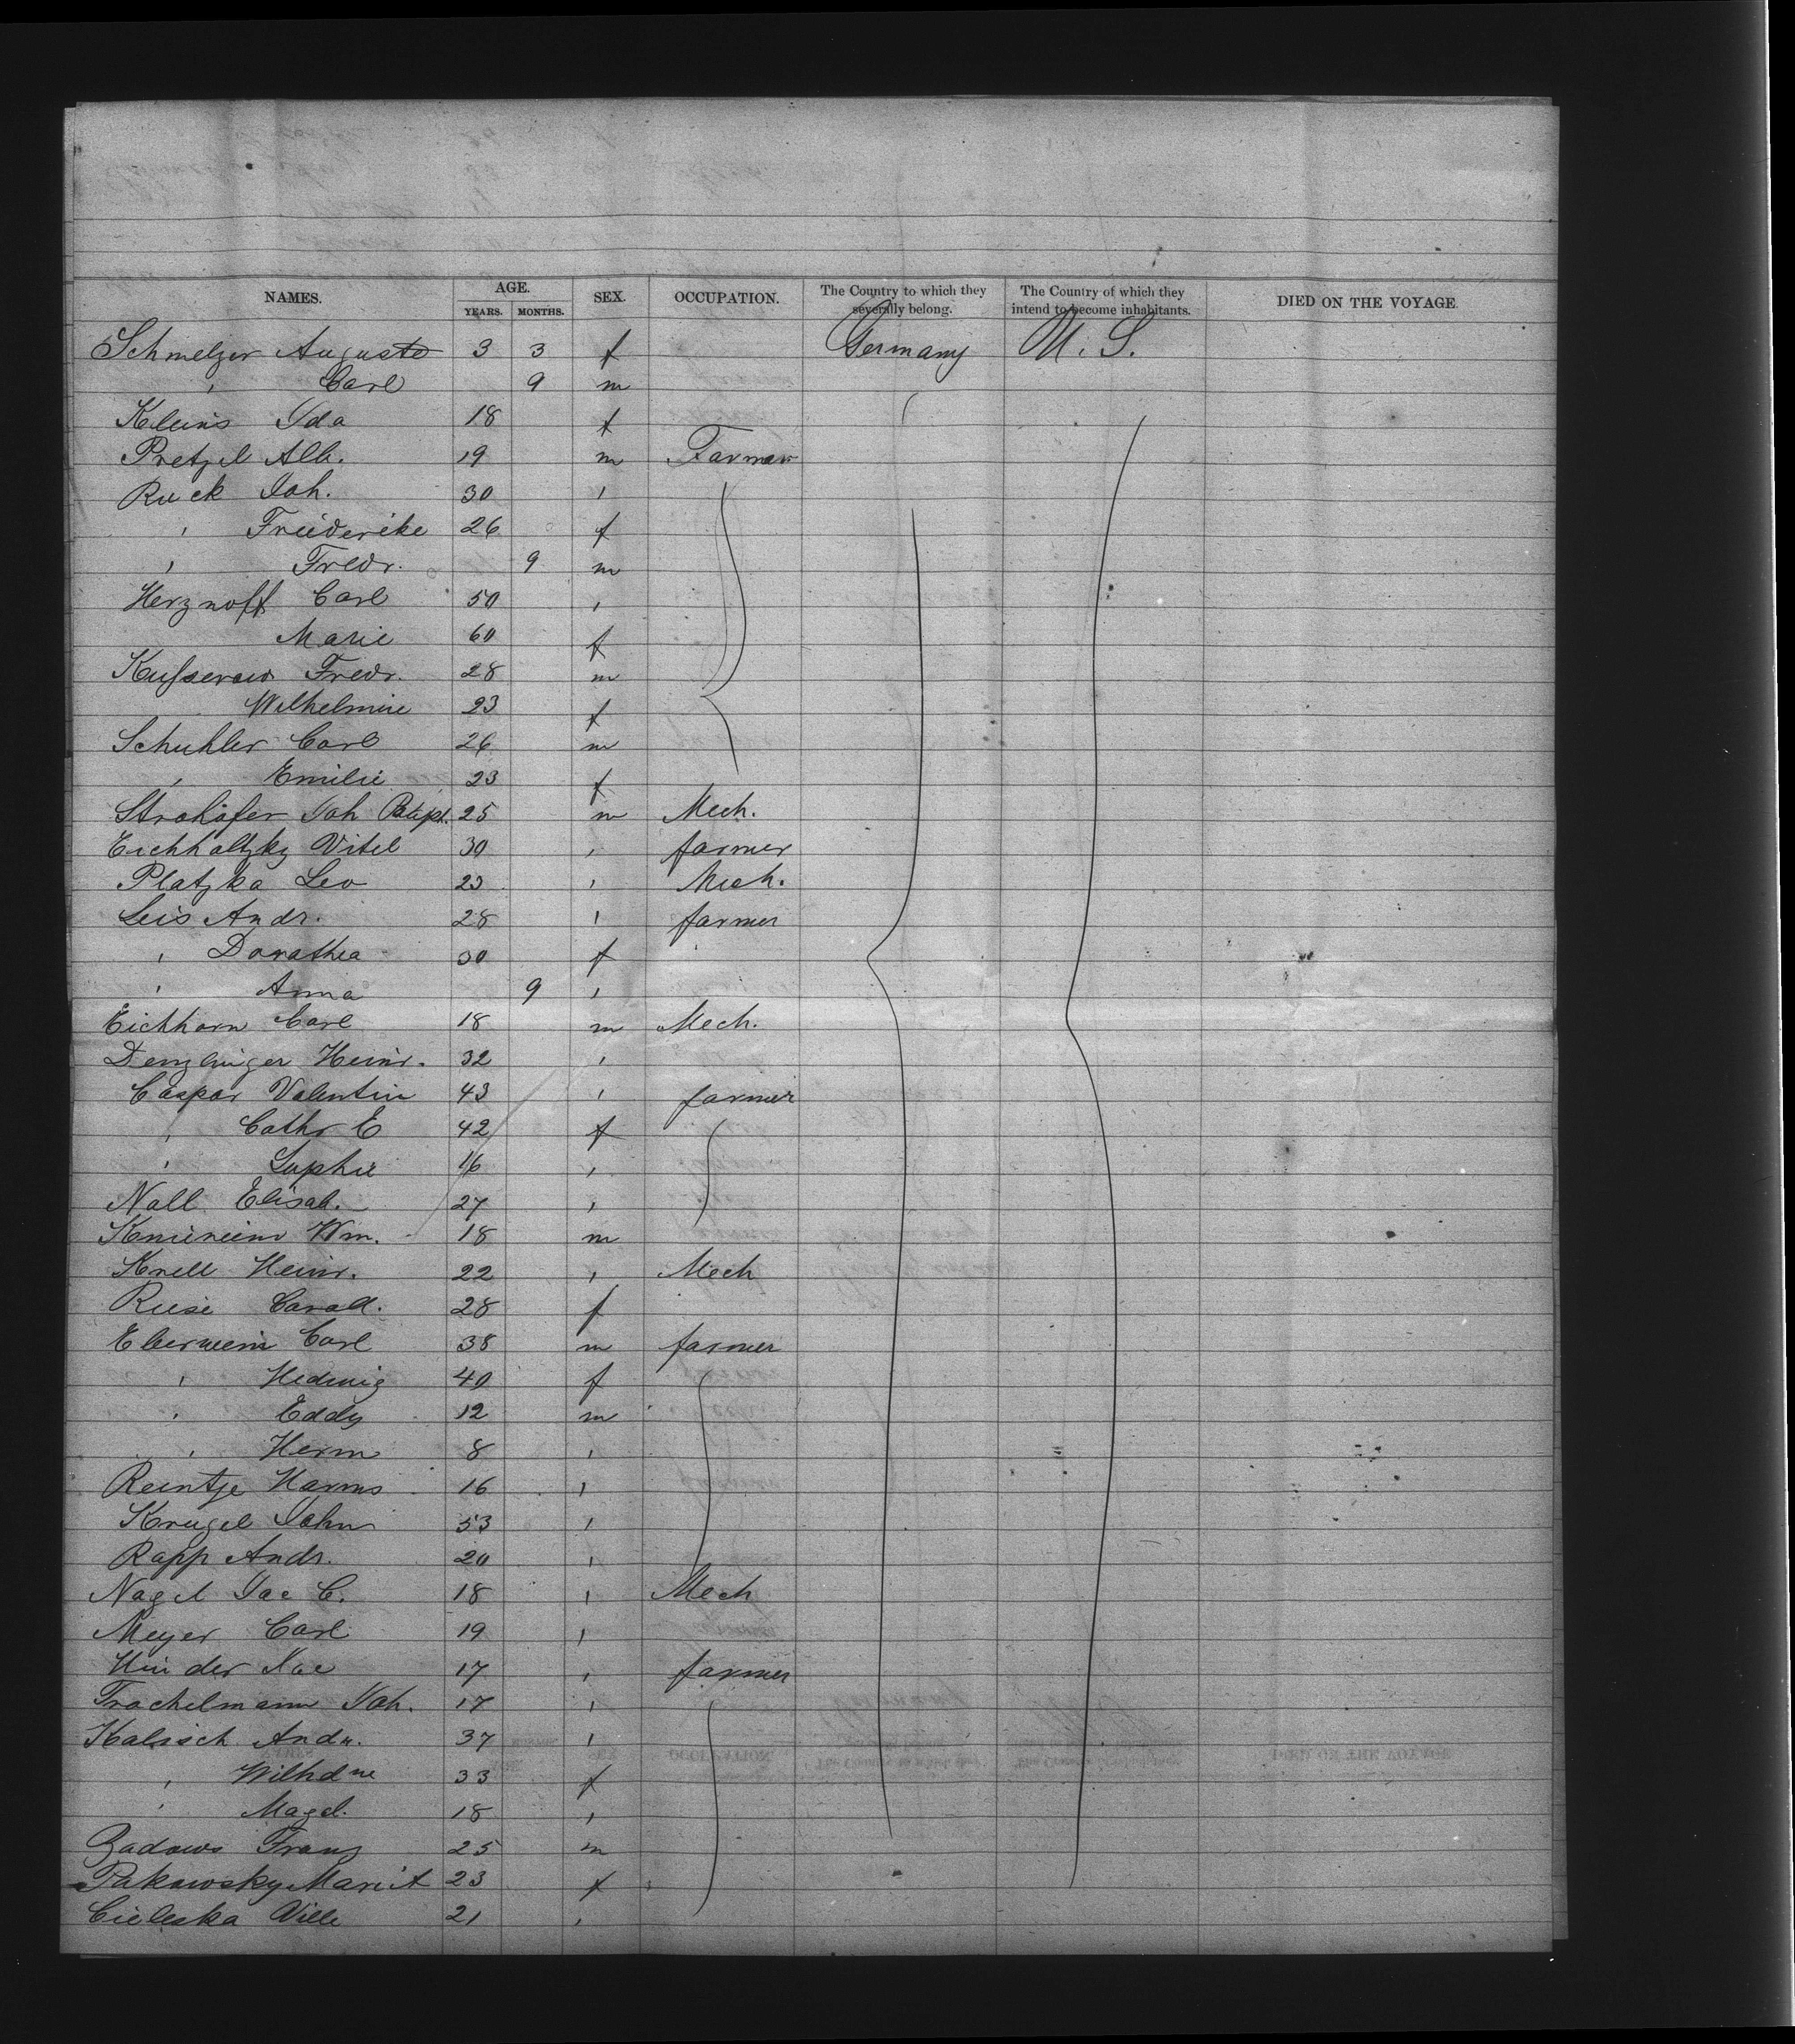 NAMES. AGE. SEX. OCCUPATION. The Country to which they severally belong. The Country of which they intend to become inhabitants. DIED ON THE VOYAGE.
YEARS. MONTHS.
Schmelzer Auguste 3 3 f Germany U. S.
" Carl 9 m
Kleins Ida 18 f
Pretzel Alb. 19 m Farmer
Ruck Joh. 30 "
" Friederike 26 f
" Fredr. 9 m
Herznoff Carl 50 "
Marie 60 f
Kusserow Fredr. 28 m
Wilhelmine 23 f
Schuhler Carl 26 m
" Emilie 23 f
Strohöfer Joh Batapt. 25 m Mech.
Eichholtzky Vitel 30 " farmer
Platzka Leo 23 " Mech.
Leis Andr. 28 " farmer
" Dorathea 30 f
" Anna 9 "
Eichhorn Carl 18 m Mech.
Denzlinger Heinr. 32 "
Caspar Valentin 43 " farmer
" Cathr E 42 f
" Sophie 16 "
Noll Elisab. 27 "
Wm. 18 m
Knell Heinr. 22 " Mech
Riese 28 f
Eberwein Carl 38 m farmer
" Hedwig 40 f
" Eddy 12 m
" Herm 8 "
Reintje Harms 16 "
Krugel John 53 "
Rapp Andr. 20 "
Nagel Jac C. 18 " Mech
Meyer Carl 19 "
Hinder Jac 17 " farmer
Trachelmann Joh. 17 "
Kalisch Andr. 37 "
" Wilhelme 33 f
" Magd. 18 "
Zadows Franz 25 m
Pakowsky Mariet 23 f
Cieleska Ville 21 "